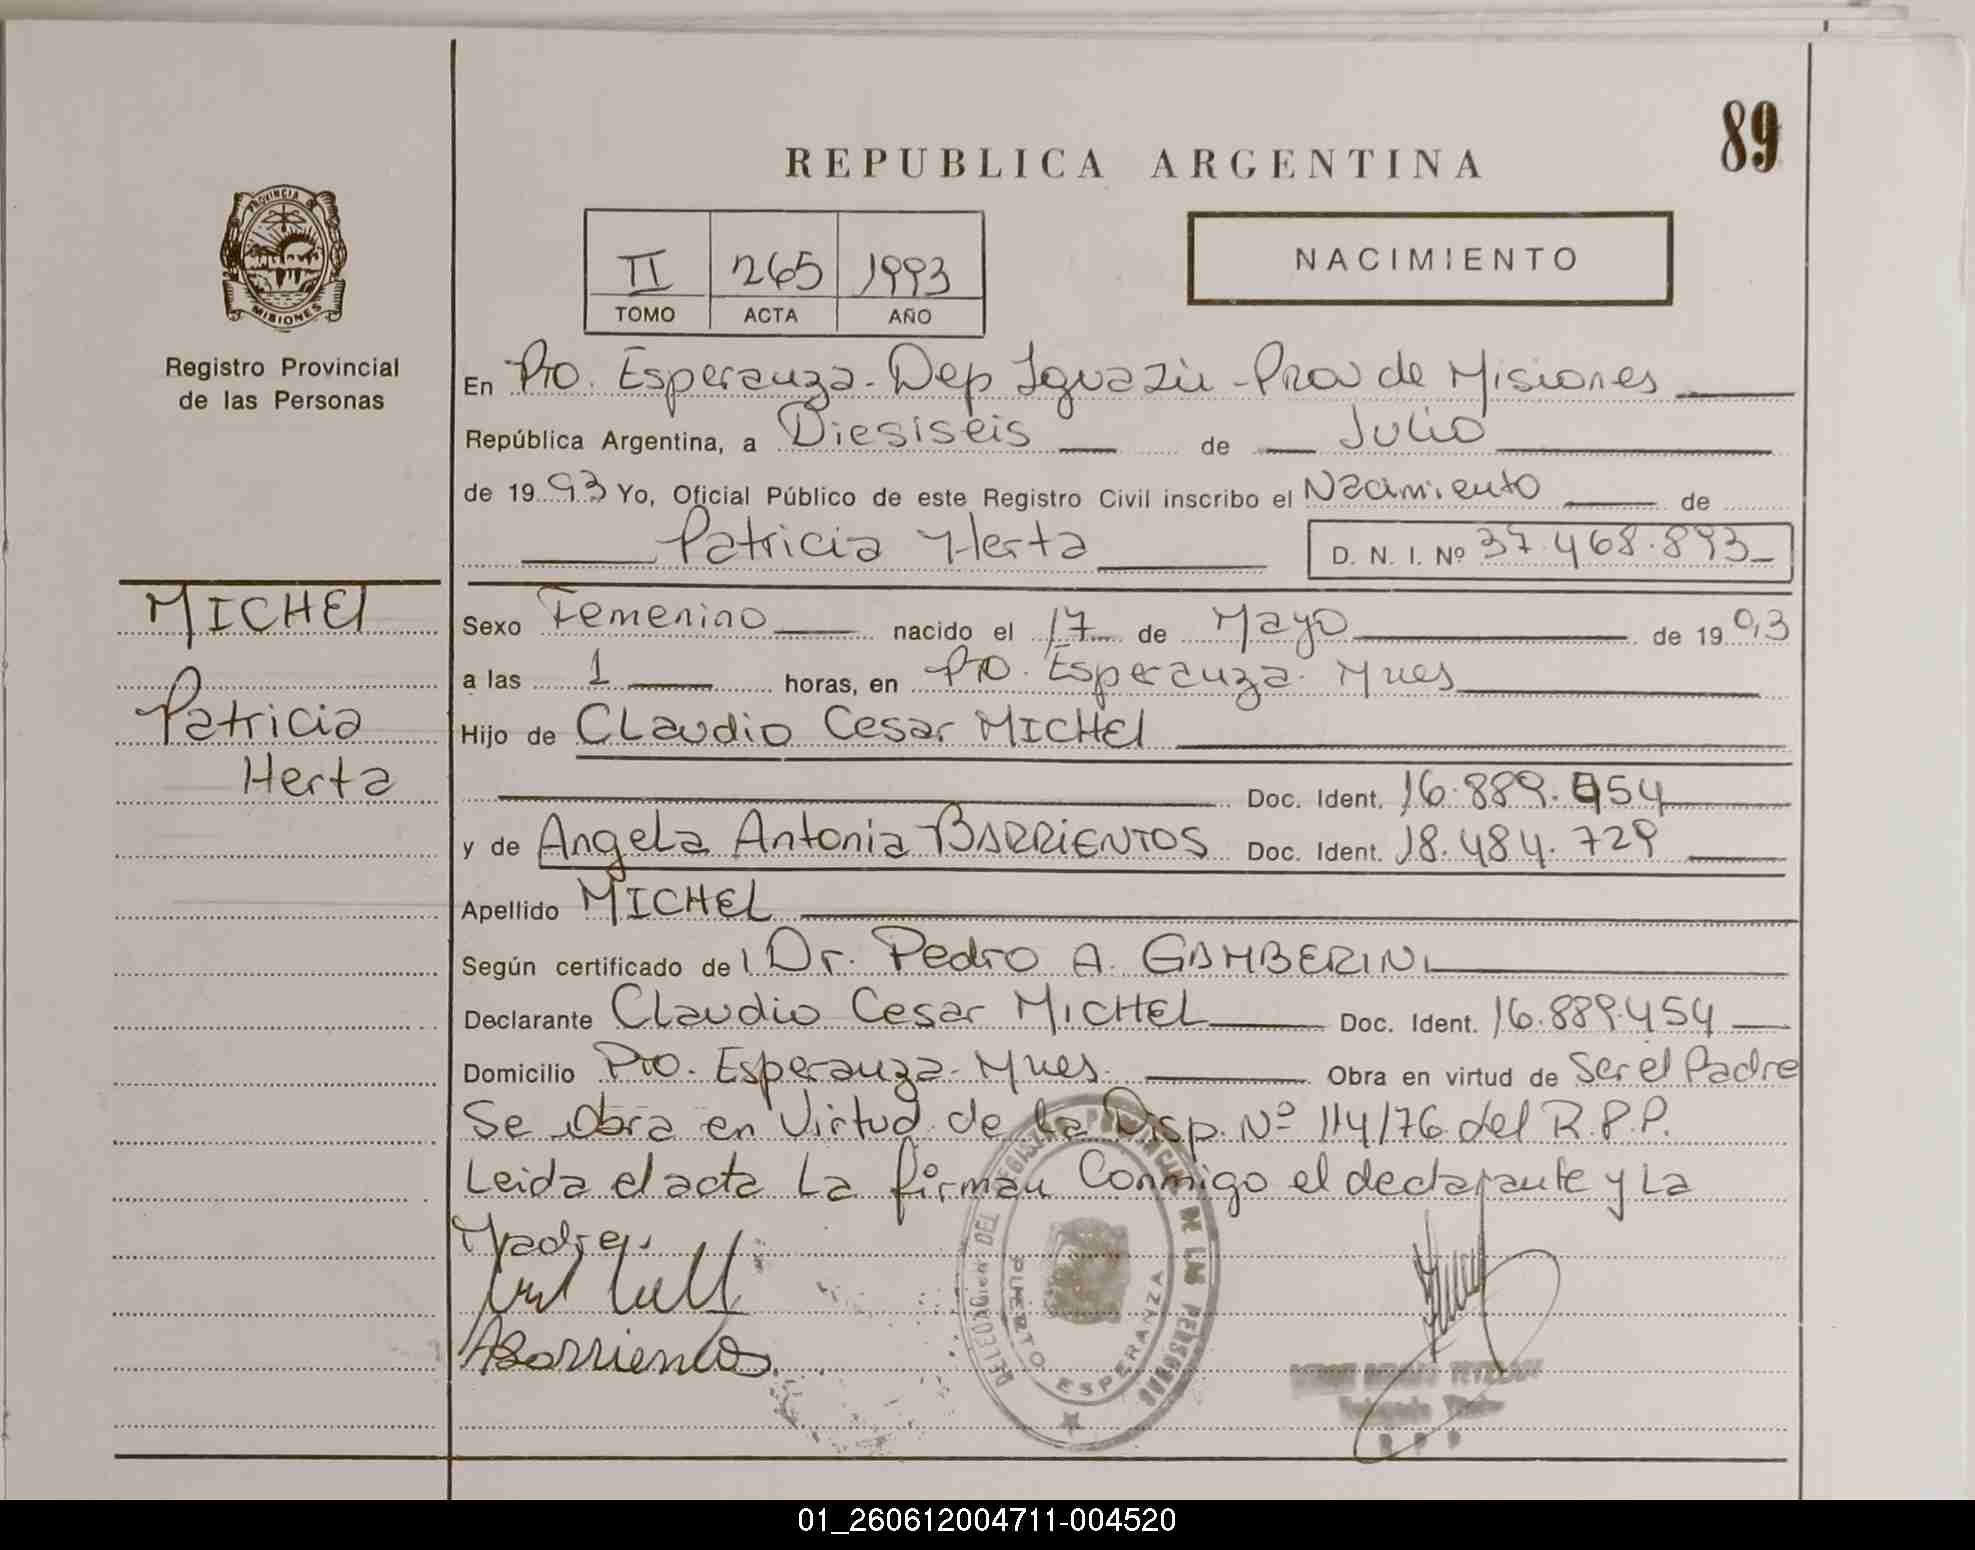 89
REPUBLICA ARGENTINA
PROVINCIA DE
MISIONES
Registro Provincial
de las Personas
II 265 1993
TOMO ACTA AÑO
NACIMIENTO
En Pto. Esperanza - Dep Iguazú - Prov de Misiones
República Argentina, a Diesiseis de Julio
de 1993 Yo, Oficial Público de este Registro Civil inscribo el Nacimiento de
Patricia Herta D. N. I. Nº 37.468.893
MICHEL
Patricia
Herta
Sexo Femenino nacido el 17 de Mayo de 1993
a las 1 horas, en Pto. Esperanza - Mnes
Hijo de Claudio Cesar MICHEL
Doc. Ident. 16.889.454
y de Angela Antonia BARRIENTOS Doc. Ident. 18.484.729
Apellido MICHEL
Según certificado de l Dr. Pedro A. GAMBERINI
Declarante Claudio Cesar MICHEL Doc. Ident. 16.889.454
Domicilio Pto. Esperanza - Mnes. Obra en virtud de Ser el Padre
Se obra en Virtud de la Disp. Nº 114/76 del R.P.P.
Leida el acta La firman Conmigo el declarante y La
Madre.
ABarrientos
DELEGACION DEL REGISTRO PROVINCIAL DE LAS PERSONAS
PUERTO ESPERANZA
R P P
01_260612004711-004520